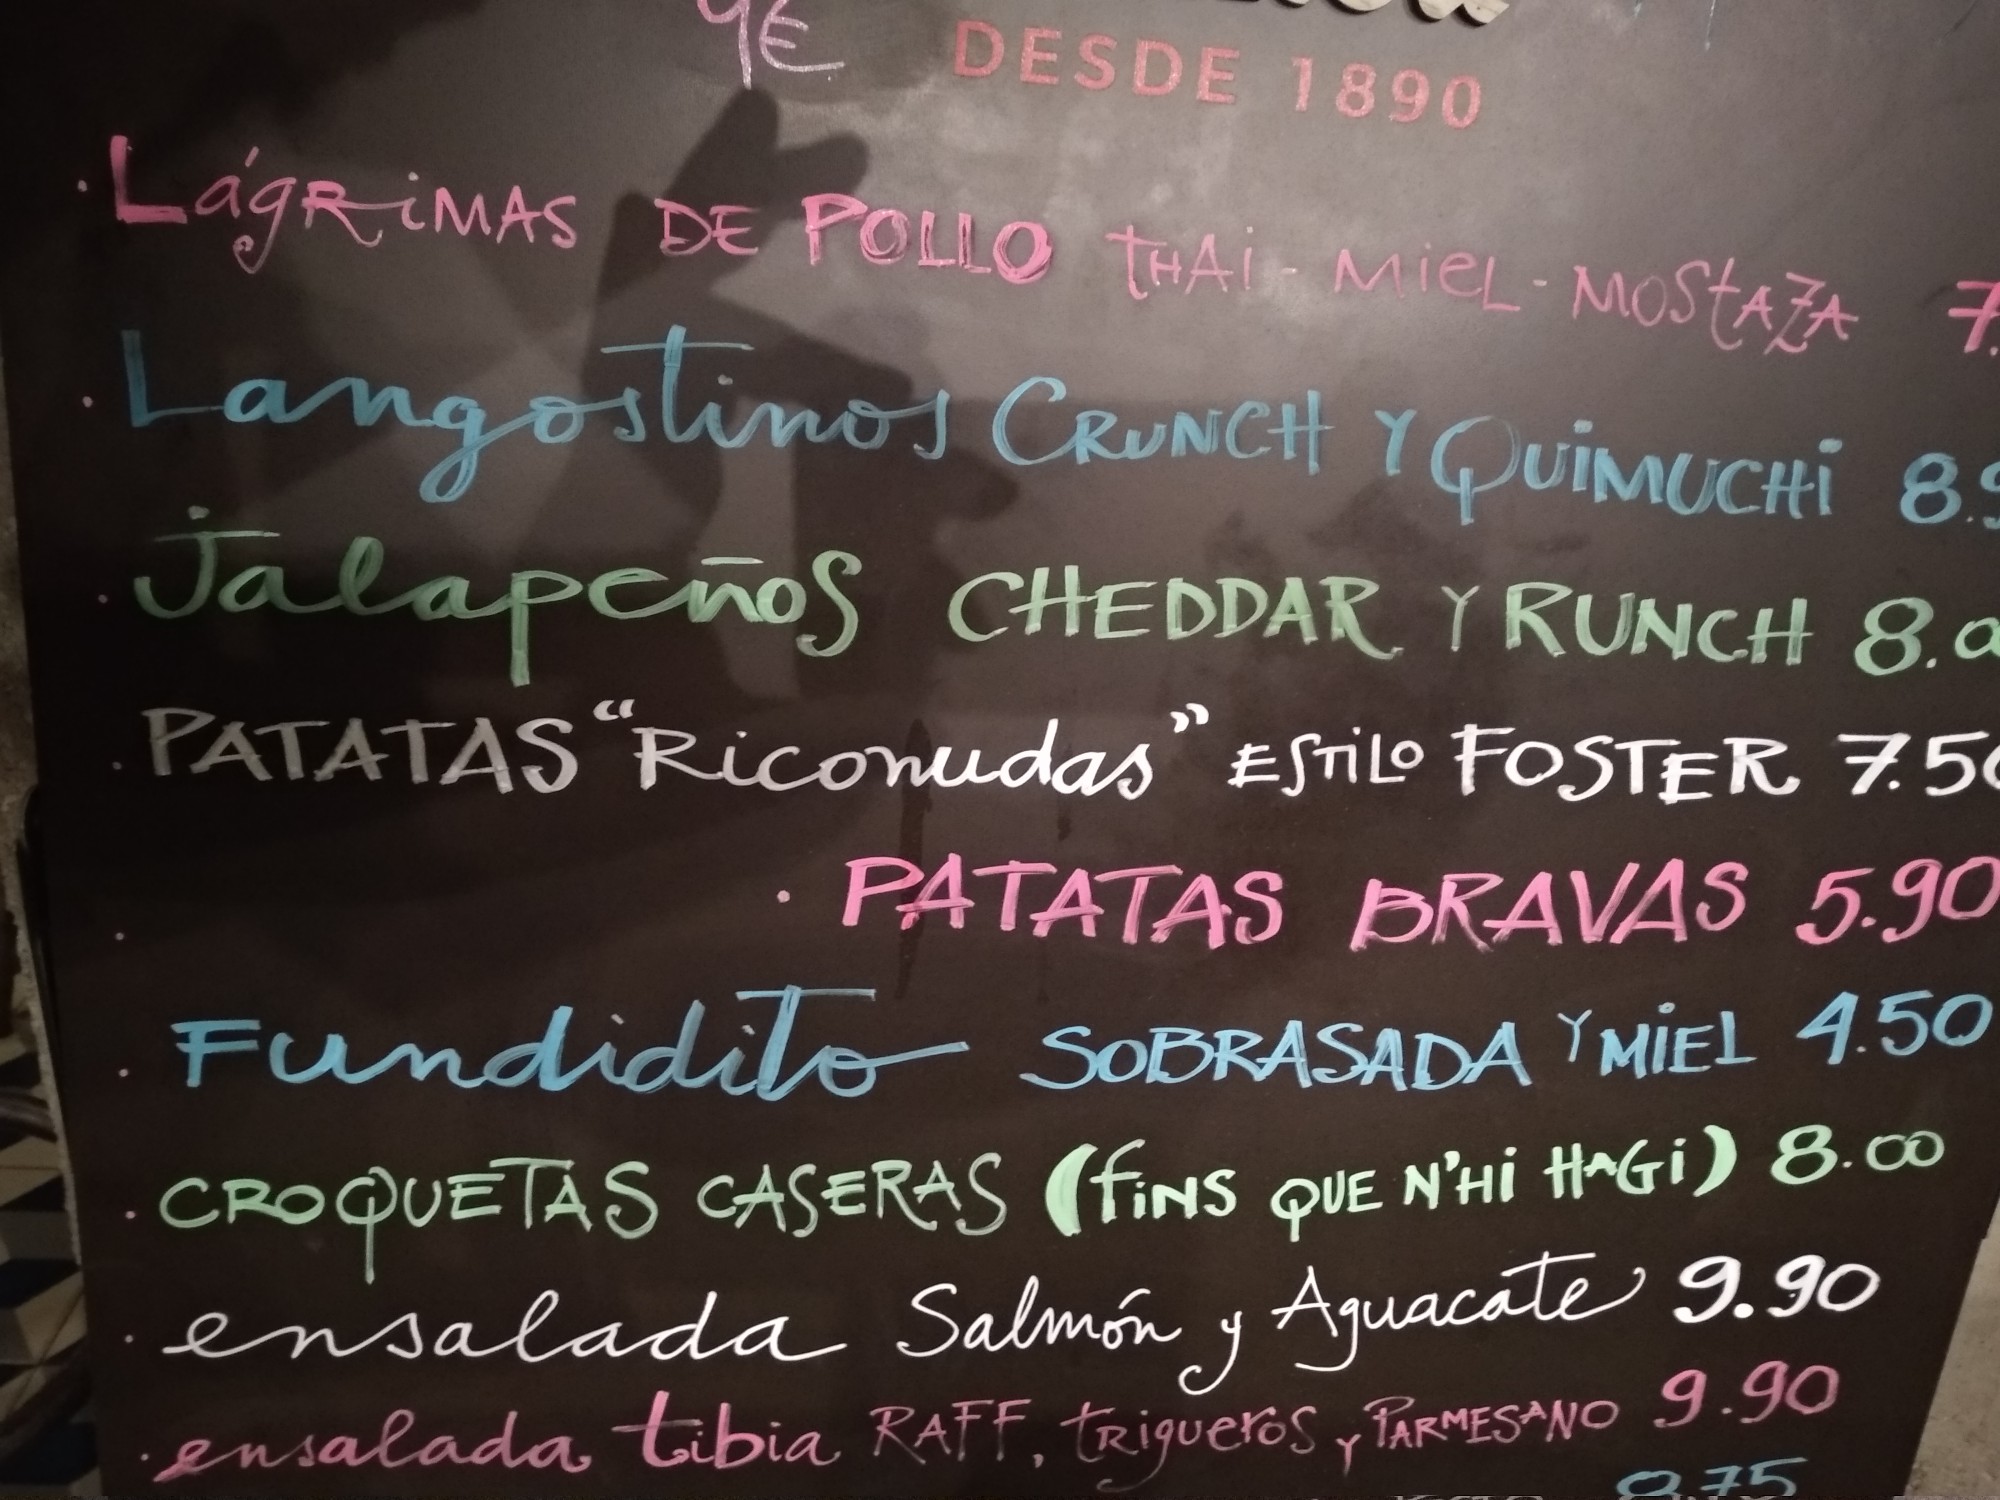 9€
DESDE 1890
· LágRiMAS DE POLLO tHAi - MiEL - MOStAZA 7.
· Langostinos CRUNCH Y QUiMUCHi 8.9
· Jalapeños CHEDDAR Y RUNCH 8.
· PATATAS “Riconudas” ESTiLO FOSTER 7.50
· PATATAS BRAVAS 5.90
· Fundidito SOBRASADA Y MiEL 4.50
· CROQUETAS CASERAS (fiNS QUE N'Hi HAGi) 8.00
· ensalada Salmón y Aguacate 9.90
· ensalada tibia RAFF, trigueros y PARMESANO 9.90
8.75